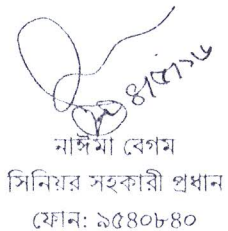 ৪/৫/১৬
নাঈমা বেগম
সিনিয়র সহকারী প্রধান
ফোন: ৯৫৪০৮৪০